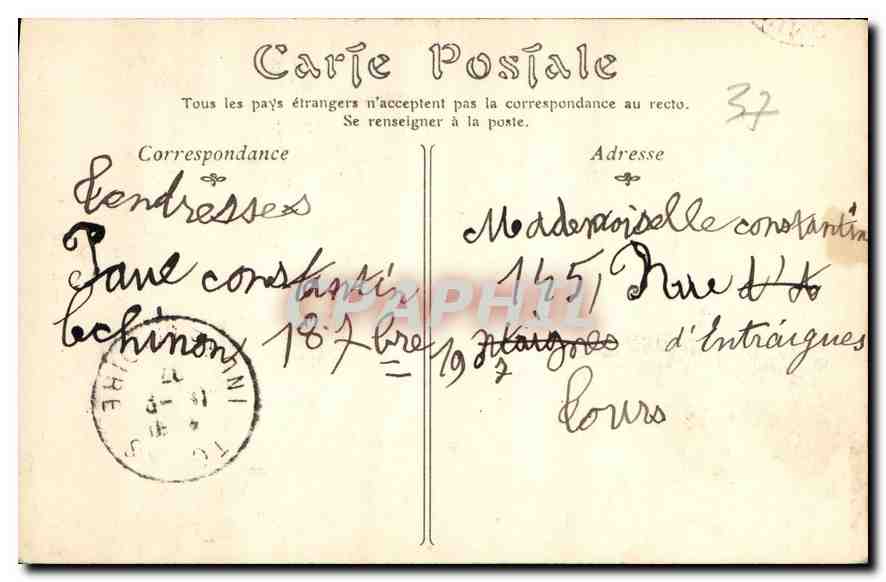 Carte Postale
Tous les pays étrangers n'acceptent pas la correspondance au recto.
Se renseigner à la poste.
37
Correspondance
Tendresses
Paul constantin
le chinon 18 7bre 1907
Adresse
Mademoiselle constantin
145, Rue d'A
d'Entráigues
Tours
CPAPHIL
INDRE